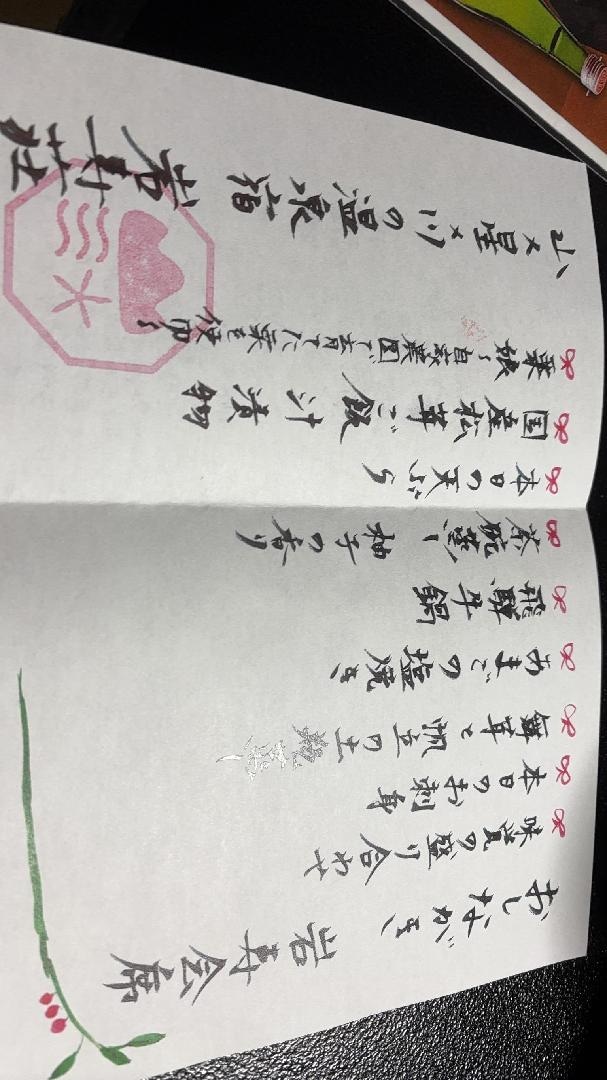 おしながき 岩寿会席
味覚の盛り合わせ
本日のお刺身
舞茸と帆立の土瓶蒸し
あまごの塩焼き
飛騨牛鍋
茶碗蒸し 柚子の香り
本日の天ぷら
国産松茸ご飯 汁 漬物
栗娘〜自家農園で育てた栗を使用〜
山×星×川の温泉宿 岩寿荘